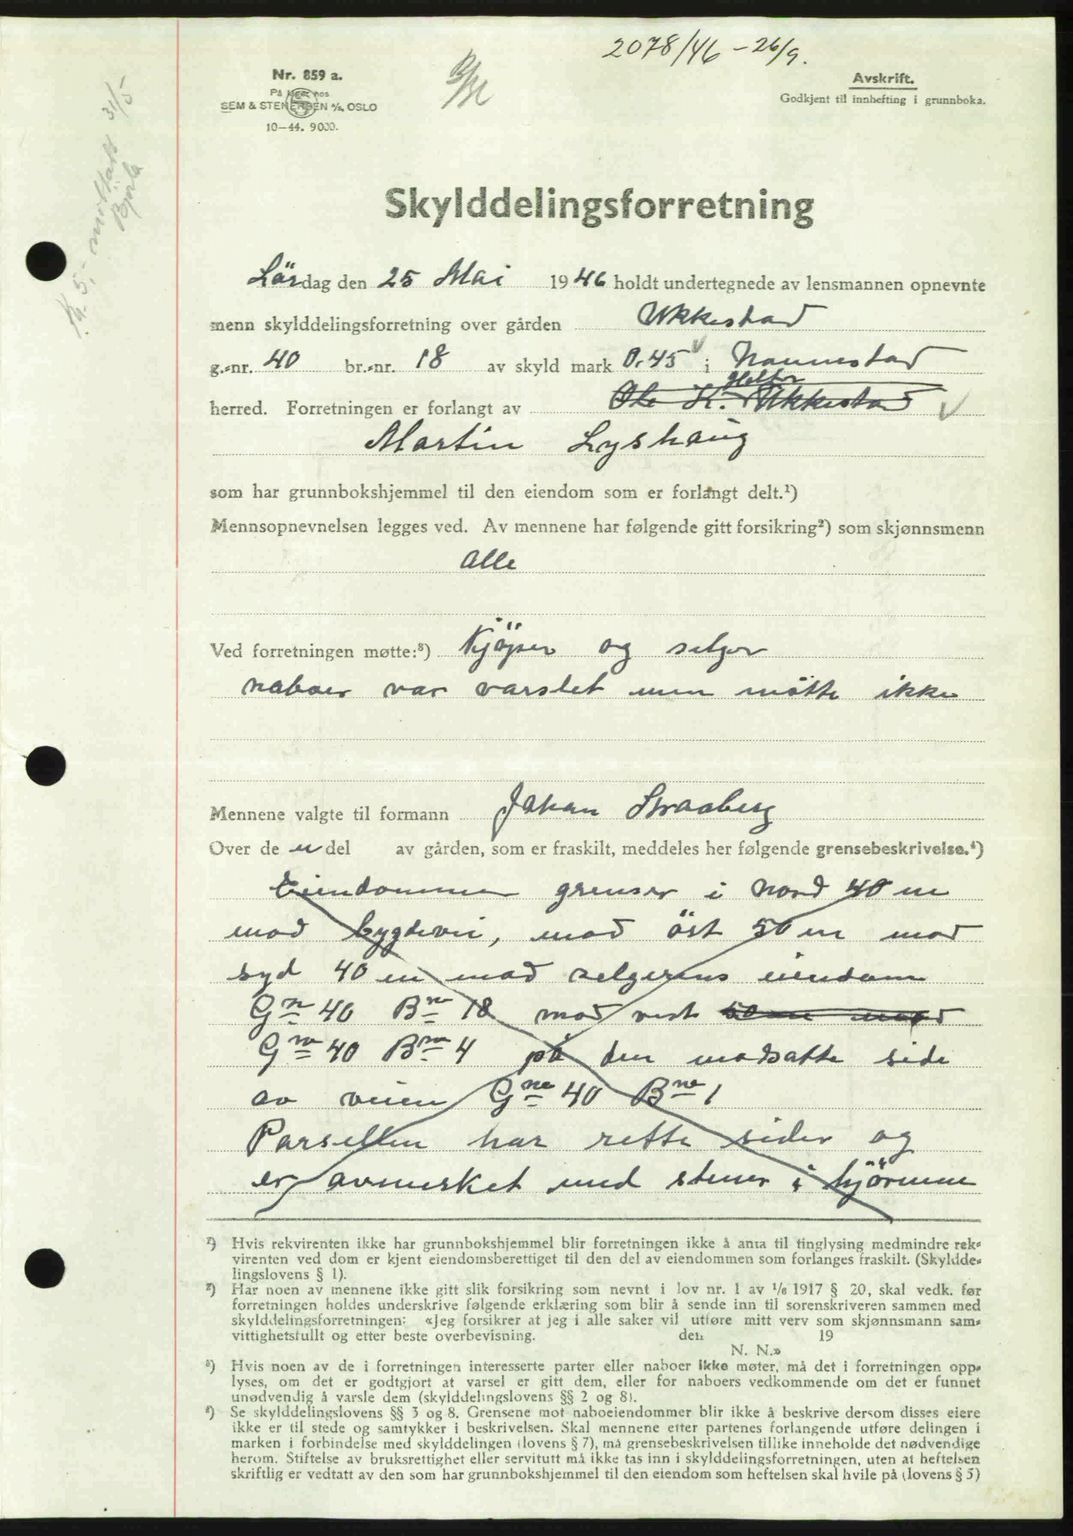 2078/46 - 26/9.
Nr. 859 a.
På lager hos
SEM & STENERSEN A/S, OSLO
10-44. 9000.
Avskrift.
Godkjent til innhefting i grunnboka.
Kr. 5.- mottatt 31/5
Skylddelingsforretning
Lörsdag den 25 Mai 1946 holdt undertegnede av lensmannen opnevnte
menn skylddelingsforretning over gården Ukkestad
g.-nr. 40 br.-nr. 18 av skyld mark 0,45 i Nannestad
herred. Forretningen er forlangt av Ole K. Ukkestad
Martin Lyshaug
som har grunnbokshjemmel til den eiendom som er forlangt delt.¹)
Mennsopnevnelsen legges ved. Av mennene har følgende gitt forsikring²) som skjønnsmenn
Alle
Ved forretningen møtte:³) Kjöper og selger
naboer var varslet men mötte ikke
Mennene valgte til formann Johan Straaberg
Over de n del av gården, som er fraskilt, meddeles her følgende grensebeskrivelse.⁴)
Eiendommen grenser i nord 40 m
mod bygdevei, mod öst 50 m mod
syd 40 m mod selgerens eiendom
Gnr 40 Bnr 18 mod vest 50 m mod
Gnr 40 Bnr 4 på den modsatte side
av veien Gnr 40 Bnr 1
Parsellen har rette sider og
er avmerket med stener i hjörnene
¹) Hvis rekvirenten ikke har grunnbokshjemmel blir forretningen ikke å anta til tinglysing medmindre rek-
virenten ved dom er kjent eiendomsberettiget til den del av eiendommen som forlanges fraskilt. (Skyldde-
lingslovens § 1).
²) Har noen av mennene ikke gitt slik forsikring som nevnt i lov nr. 1 av 1/6 1917 § 20, skal vedk. før
forretningen holdes underskrive følgende erklæring som blir å sende inn til sorenskriveren sammen med
skylddelingsforretningen: «Jeg forsikrer at jeg i alle saker vil utføre mitt verv som skjønnsmann sam-
vittighetsfullt og etter beste overbevisning. den 19
N. N.»
³) Hvis noen av de i forretningen interesserte parter eller naboer ikke møter, må det i forretningen opp-
lyses, om det er godtgjort at varsel er gitt dem, eller for naboers vedkommende om det er funnet
unødvendig å varsle dem (skylddelingslovens §§ 2 og 8).
⁴) Se skylddelingslovens §§ 3 og 8. Grensene mot naboeiendommer blir ikke å beskrive dersom disses eiere
ikke er til stede og samtykker i beskrivelsen. Skal mennene etter partenes forlangende utføre delingen i
marken i forbindelse med skylddelingen (lovens § 7), må grensebeskrivelsen tillike inneholde det nødvendige
herom. Stiftelse av bruksrettighet eller servitutt må ikke tas inn i skylddelingsforretningen, uten at heftelsen
skriftlig er vedtatt av den som har grunnbokshjemmel til den eiendom som heftelsen skal hvile på (lovens § 5)